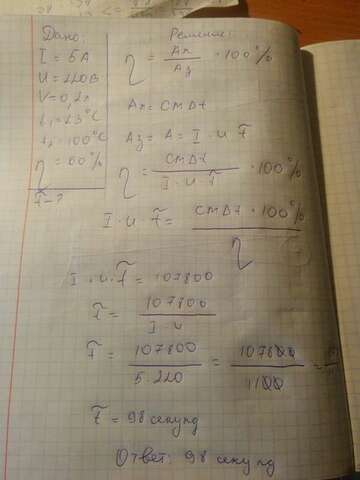 Дано:
I = 5А
U = 220В
V - 0,2л
t₁ = 23°C
t₂ = 100°C
η = 60%
τ - ?
Решение:
η = Aп / Aз · 100%
Aп = cmΔt
Aз = A = I · u τ
η = cmΔt / I · u τ · 100%
I · u τ = cmΔt · 100% / η
I · u · τ = 107800
τ = 107800 / I · u
τ = 107800 / 5 · 220 = 107800 / 1100 =
τ = 98 секунд
Ответ: 98 секунд